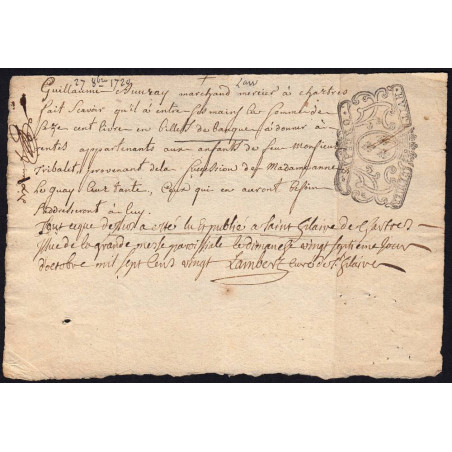 27 8bre 1720
Law
Guillaume Aunray marchand mercier à chartres
fait scavoir qu'il à entre ses mains la somme de
seize cent livre en billets de banque à donner à
rentes appartenants aux enfants de feu monsieur
Tribalet, provenant de la succession de Madame anne
le quay leur tante, Ceux qui en auront besoin
s'addresseront à luy.
Tout ce que dessus a esté lu et publié a saint hilaire de chartres
issue de la grande messe paroissiale le dimanche vingt septieme jour
d'octobre mil sept cens vingt Lambert curé de St hilaire